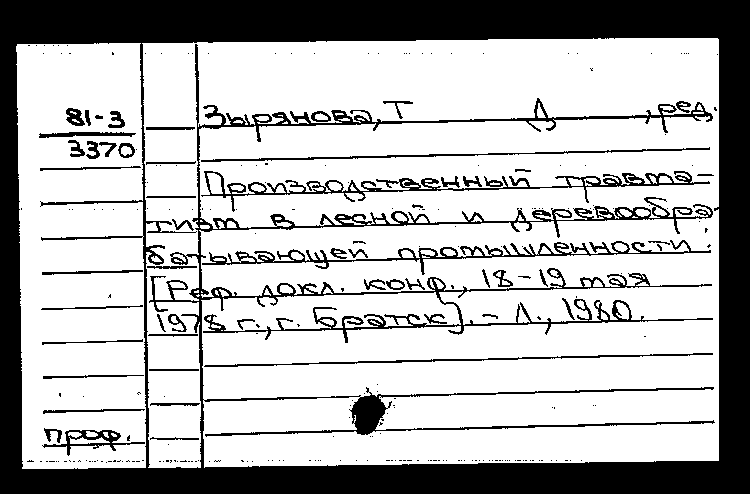 81-3
3370
Зырянова, Т Д , ред.
Производственный травма-
тизм в лесной и деревообра-
батывающей промышленности :
[Реф. докл. конф., 18-19 мая
1978 г., г. Братск]. - Л., 1980.
проф.